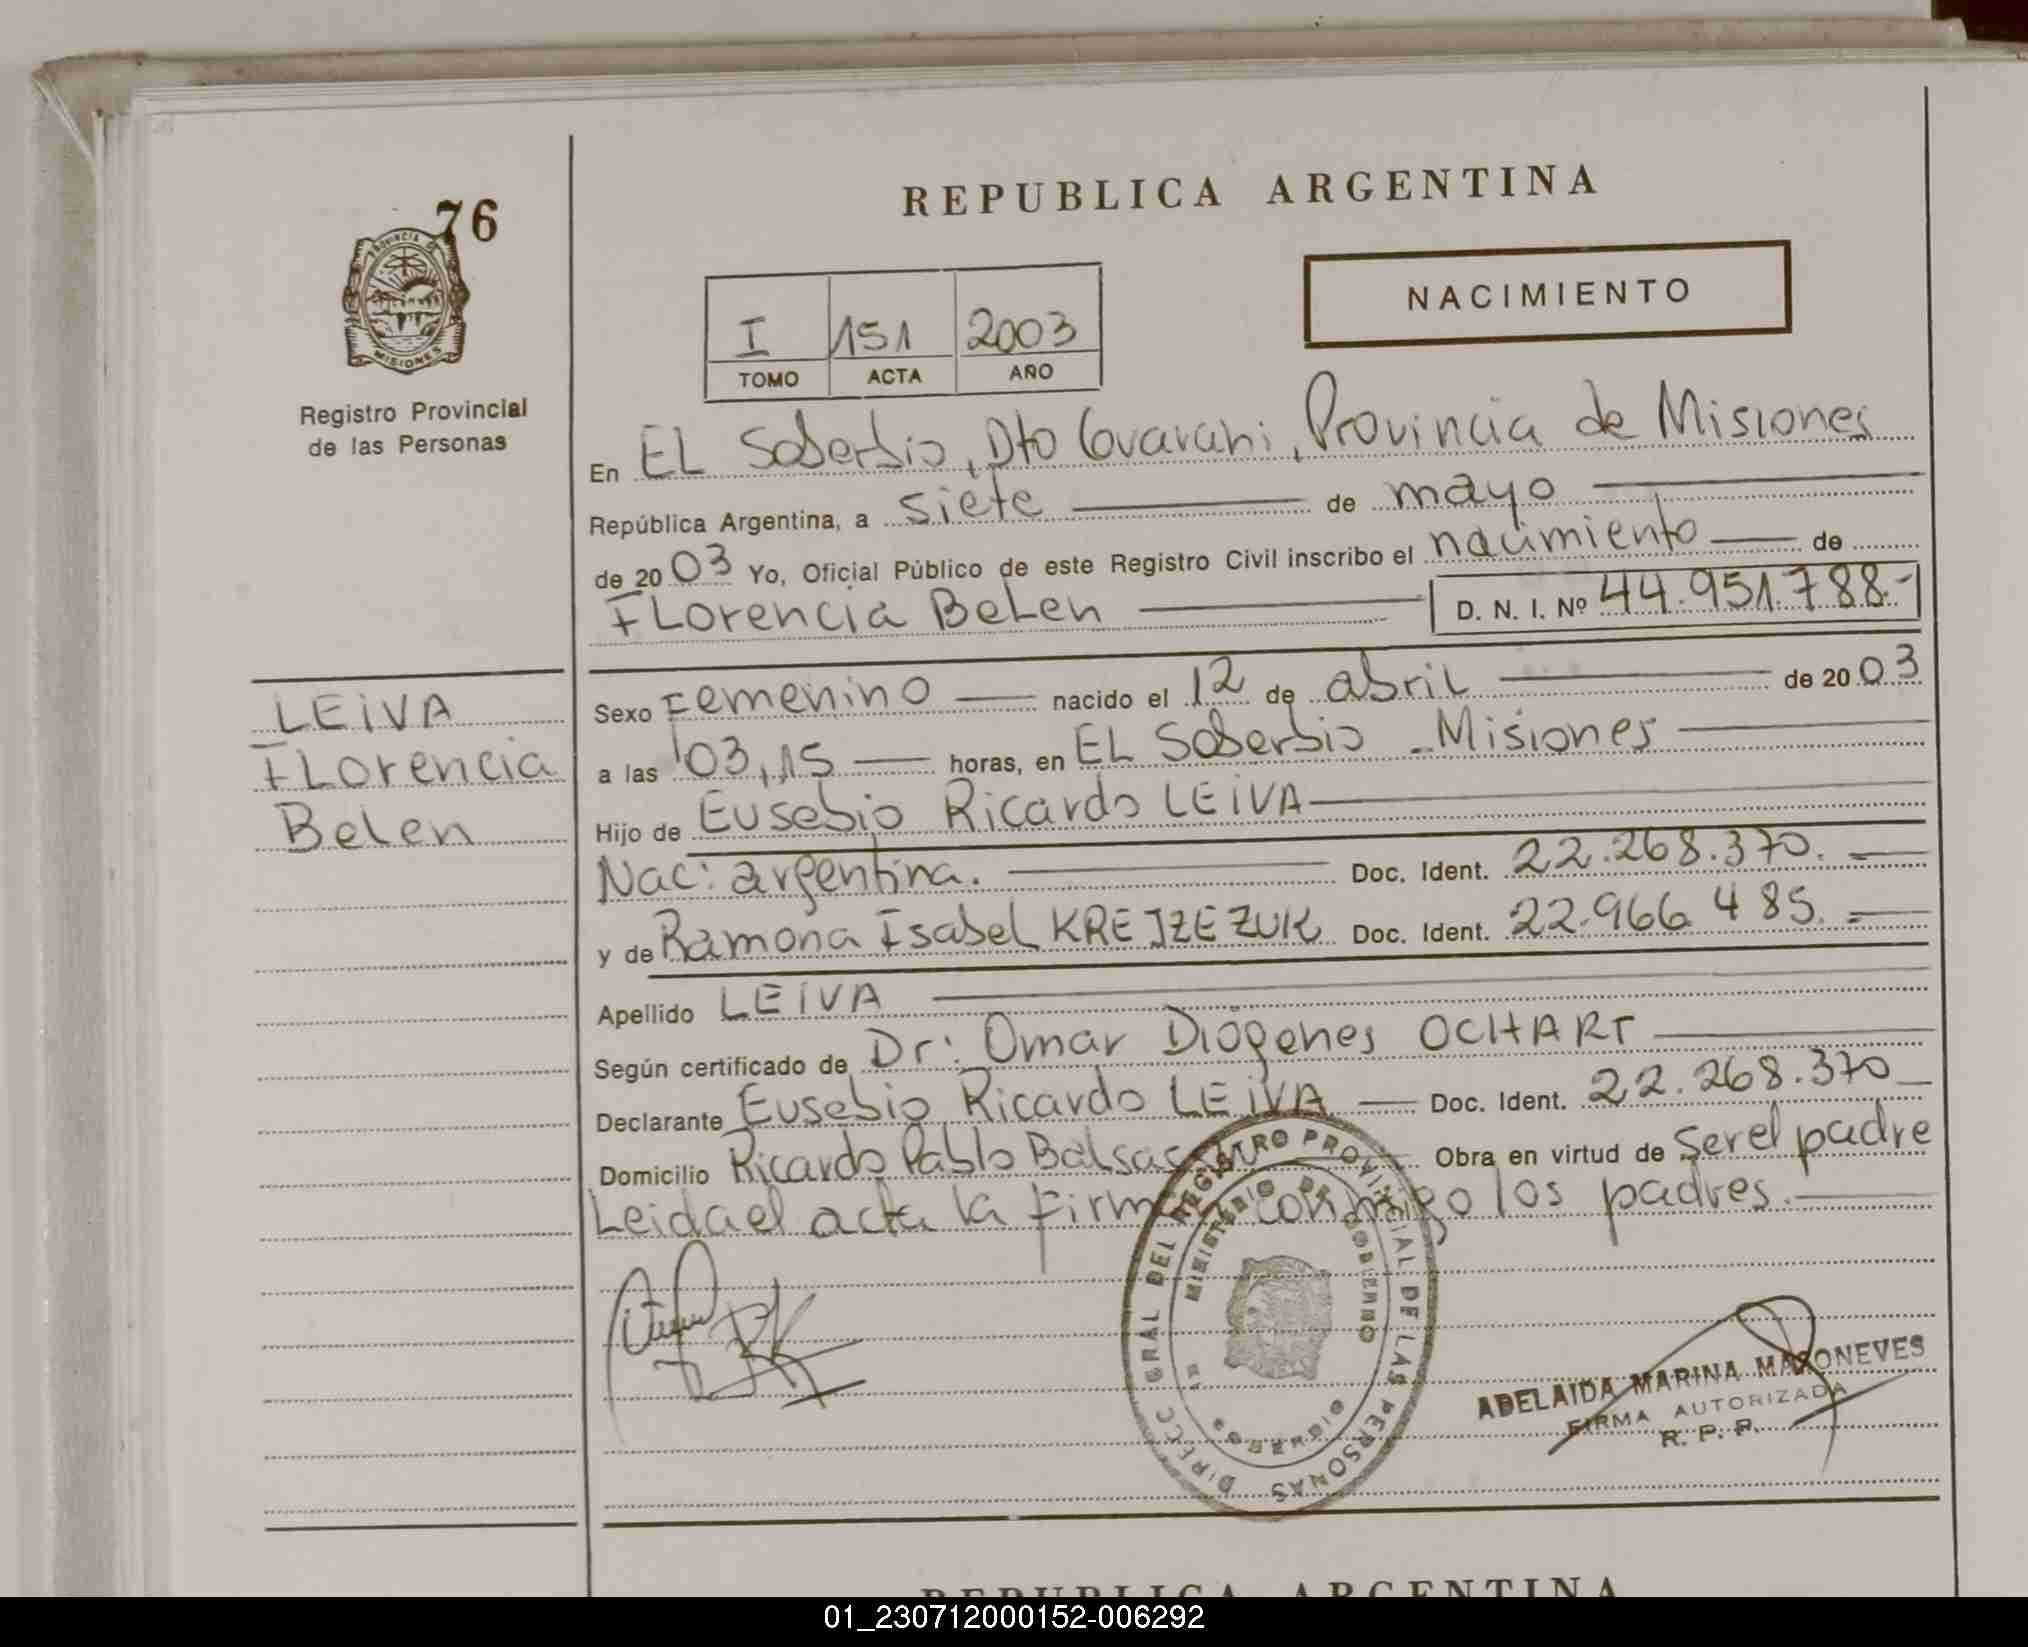 76
PROVINCIA DE
MISIONES
Registro Provincial
de las Personas
REPUBLICA ARGENTINA
NACIMIENTO
I 151 2003
TOMO ACTA AÑO
En EL Soberbio, Dto Guarani, Provincia de Misiones
República Argentina, a siete de mayo
de 2003 Yo, Oficial Público de este Registro Civil inscribo el nacimiento de
FLorencia BeLen D. N. I. Nº 44.951.788.-
LEIVA
FLorencia
BeLen
Sexo Femenino nacido el 12 de abriL de 2003
a las 03,15 horas, en EL Soberbio - Misiones
Hijo de Eusebio Ricardo LEIVA
Nac: argentina. Doc. Ident. 22.268.370.
y de Ramona IsabeL KREJZEZUK Doc. Ident. 22.966.485.
Apellido LEIVA
Según certificado de Dr: Omar Diógenes OCHART
Declarante Eusebio Ricardo LEIVA Doc. Ident. 22.268.370
Domicilio Ricardo Pablo Obra en virtud de ser el padre
Leida el acta la firman conmigo los padres.
DIRECC GRAL DEL REGISTRO PROVINCIAL DE LAS PERSONAS
MINISTERIO DE GOBIERNO
MISIONES
ADELAIDA MARINA MAGONEVES
FIRMA AUTORIZADA
R. P. P.
REPUBLICA ARGENTINA
01_230712000152-006292